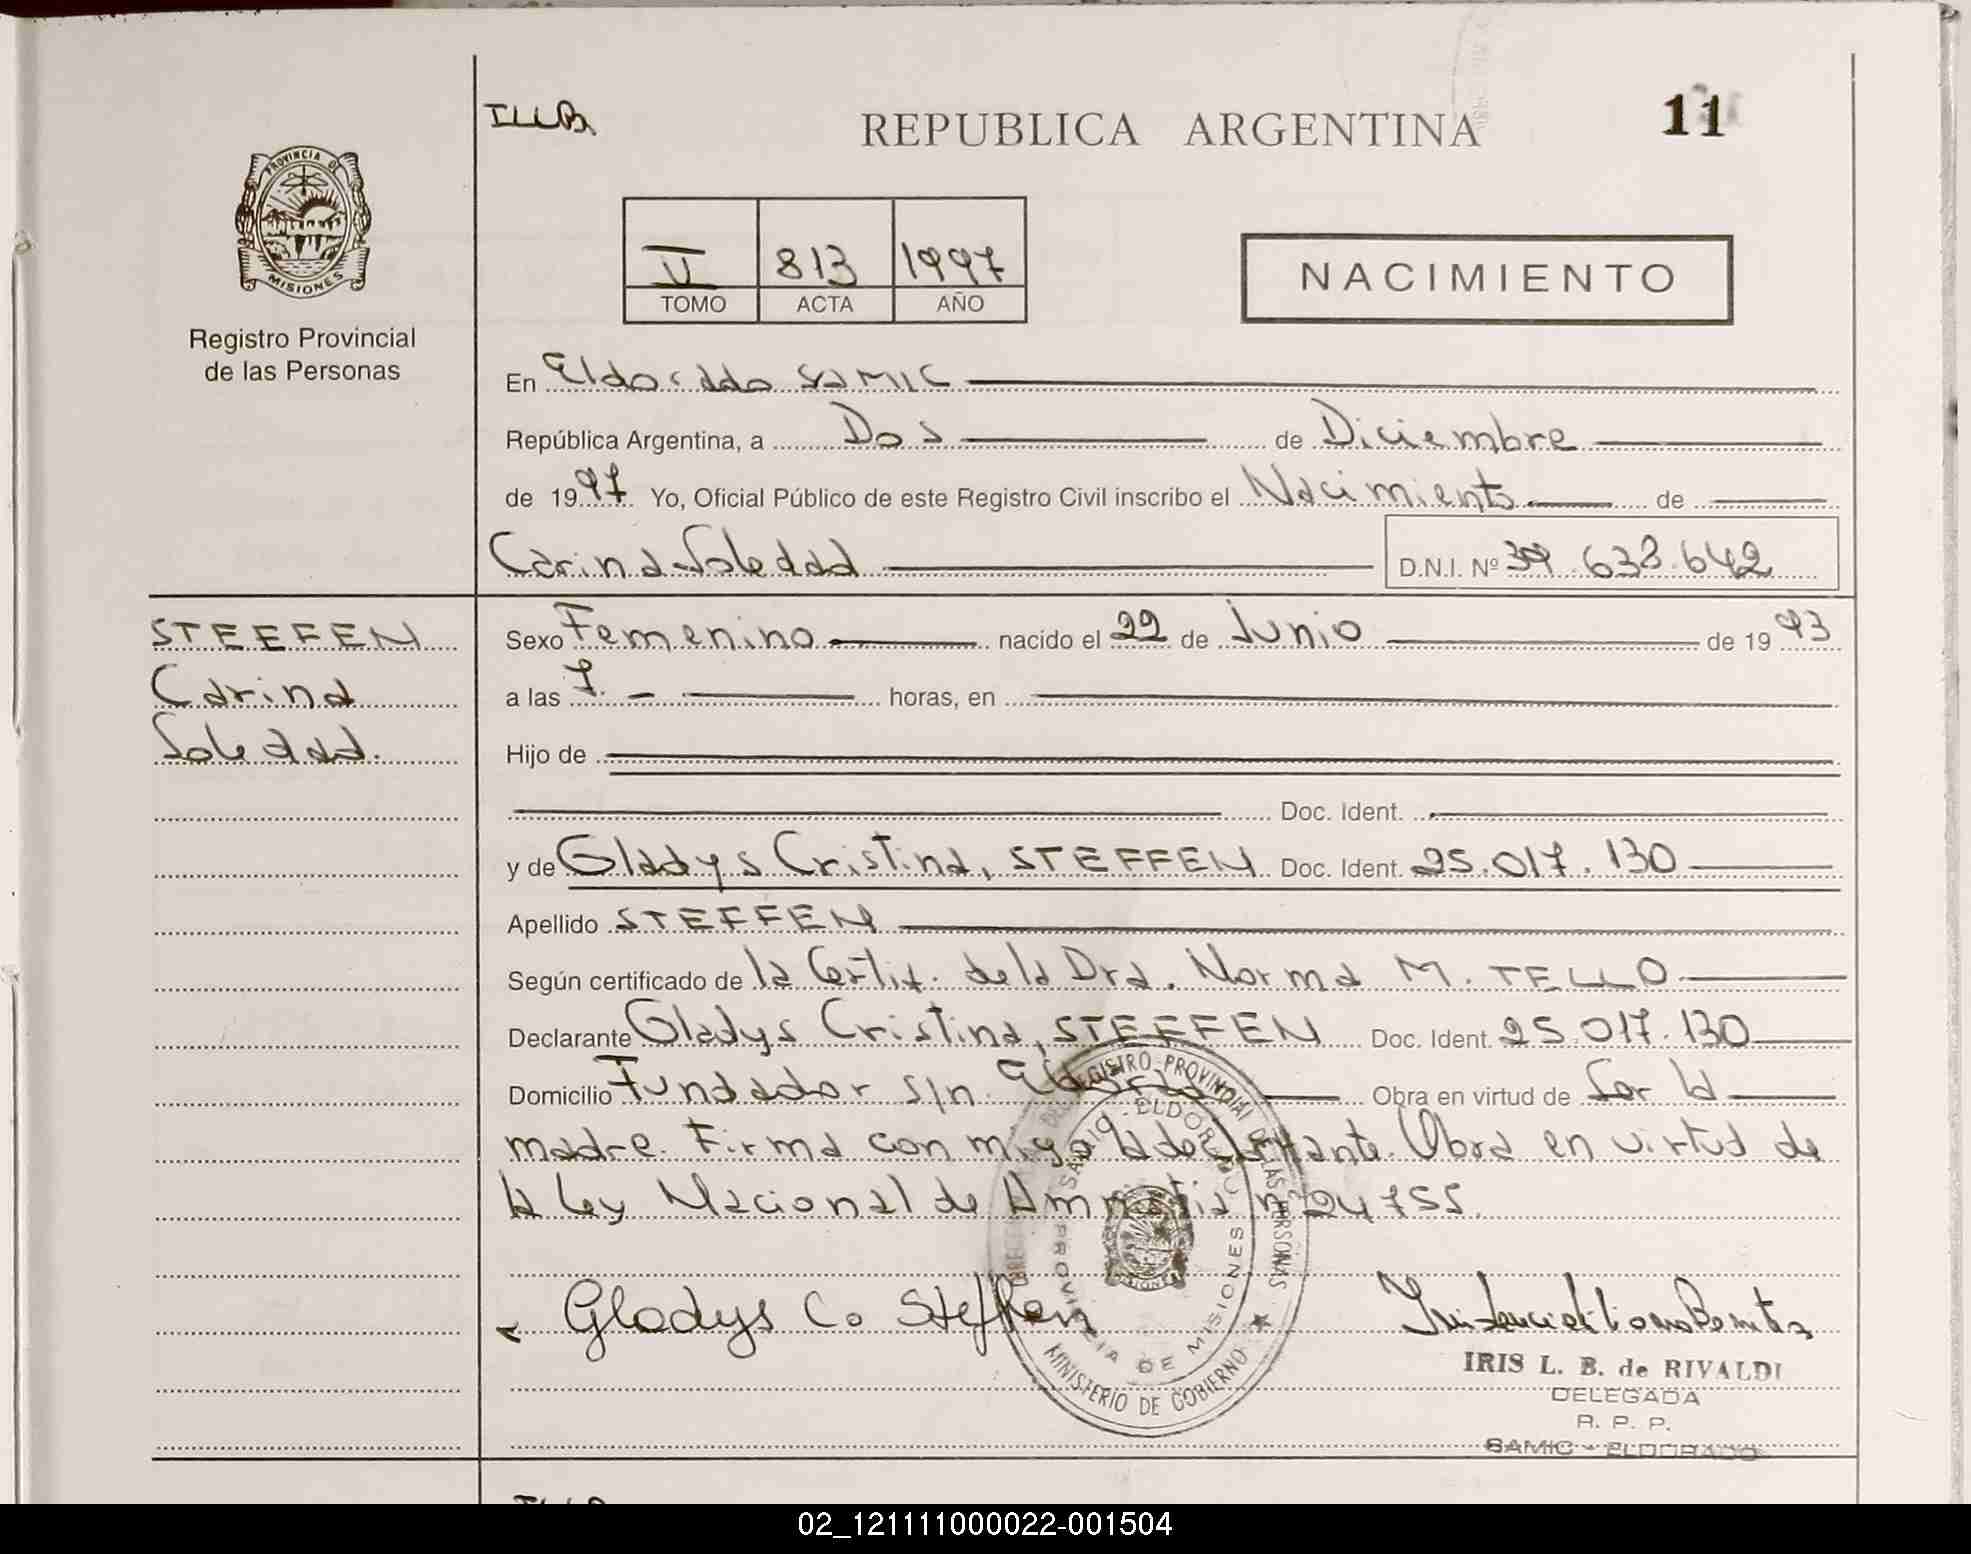 ILLB
REPUBLICA ARGENTINA
11
PROVINCIA DE
MISIONES
Registro Provincial
de las Personas
V 813 1997
TOMO ACTA AÑO
NACIMIENTO
En Eldorado SAMIC
República Argentina, a Dos de Diciembre
de 1997. Yo, Oficial Público de este Registro Civil inscribo el Nacimiento de
Carina Soledad
D.N.I. Nº 39.638.642
STEFFEN
Carina
Soledad.
Sexo Femenino nacido el 22 de Junio de 1993
a las 7. horas, en
Hijo de
Doc. Ident.
y de Gladys Cristina, STEFFEN Doc. Ident. 25.017.130
Apellido STEFFEN
Según certificado de la Certif. de la Dra. Norma M. TELLO
Declarante Gladys Cristina, STEFFEN Doc. Ident. 25.017.130
Domicilio Fundador s/n Eldorado Obra en virtud de Ser la
madre. Firma con migo la declarante. Obra en virtud de
la Ley Nacional de Amnistia nº 24755.
Gladys C. Steffen
REGISTRO PROVINCIAL DE LAS PERSONAS
MINISTERIO DE GOBIERNO
ELDORADO
PROVINCIA DE MISIONES
IRIS L. B. de RIVALDI
DELEGADA
R. P. P.
SAMIC - ELDORADO
02_121111000022-001504